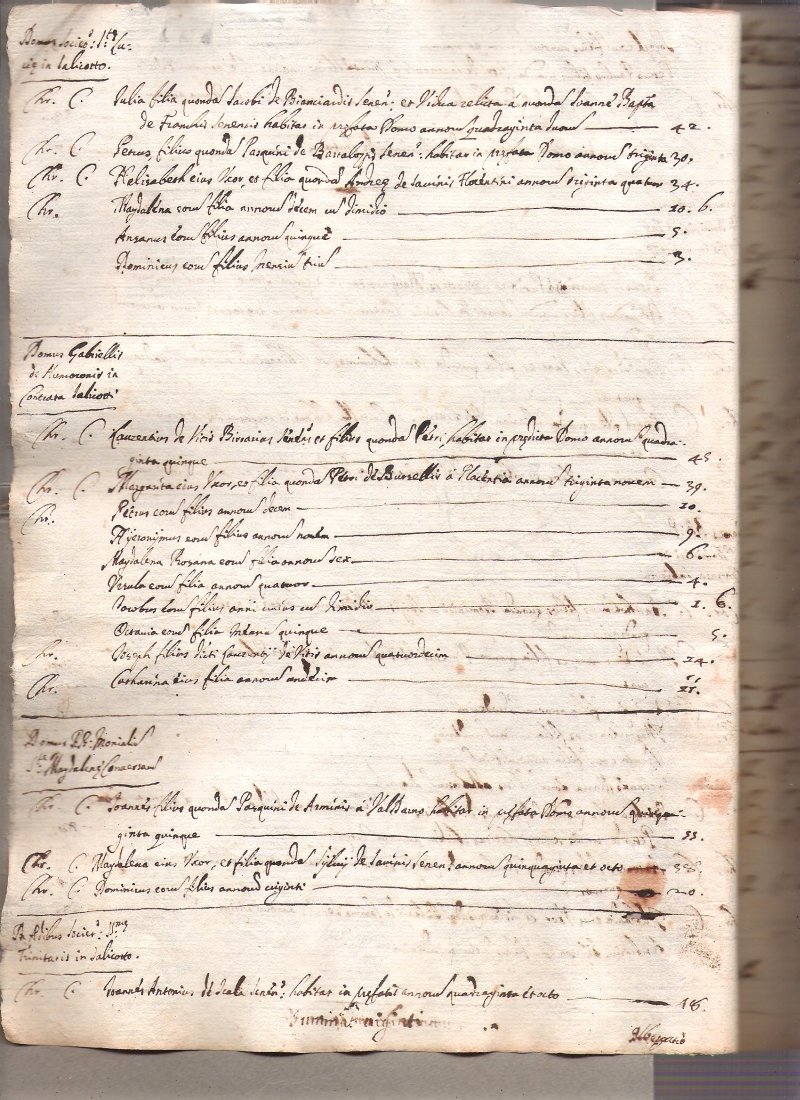 Domus Societ: S.tæ Lu-
ciæ in Salicotto.
Chr. C. Iulia filia quondã Iacobi de Bianciardis Senen: et Vidua relicta à quondã Ioanne Bapta
de Franchis Senensis habitat in præfata Domo annorũ quadraginta duorũ 42.
Chr. C. Petrus filius quondã Pasquini de Senen: habitat in præfata Domo annorũ triginta 30.
Chr. C. Helisabeth eius Uxor, et filia quondã Andreę de Florentini annorũ triginta quatuor 34.
Chr. Magdalena eorũ filia annorũ decem cũ dimidio 10. 6.
Ansanus eorũ filius annorũ quinque 5.
Dominicus eorũ filius Mensiũ triũ 3.
Domus Gabriellis
de in
Contrata Salicotti
Chr. C. Laurentius de Vitis Senensis et filius quondã Petri, habitat in prędicta Domo annorũ quadra-
ginta quinque 45.
Chr. C. Margarita eius Uxor, et filia quondã Petri de Bursellis à Placentia annorũ triginta novem 39.
Chr. Petrus eorũ filius annorũ decem 10.
Hyeronimus eorũ filius annorũ novem 9.
Magdalena Rosana eorũ filia annorũ sex 6.
Ursula eorũ filia annorũ quatuor 4.
Iacobus eorũ filius anni unius cũ dimidio 1. 6.
Octavia eorũ filia Mensiũ quinque 5.
Chr. Ioseph filius dicti Laurentij de Vitis annorũ quatuordecim 14.
Chr. Catharina eius filia annorũ undecim 11.
Domus RR. Monialiũ
S.tę Magdalenę
Chr. C. Ioannes filius quondã Pasquini de à habitat in prefata Domo annorũ quinqua-
ginta quinque 55.
Chr. C. Magdalena eius Uxor, et filia quondã Sylvij de Senen: annorũ quinquaginta et octo 58.
Chr. C. Dominicus eorũ filius annorũ viginti 20.
In Ædibus Societ: SS.mę
Trinitatis in Salicotto.
Chr. C. Ioannes Antonius de Scala Senen: habitat in prefatis annorũ quadraginta et octo 48.